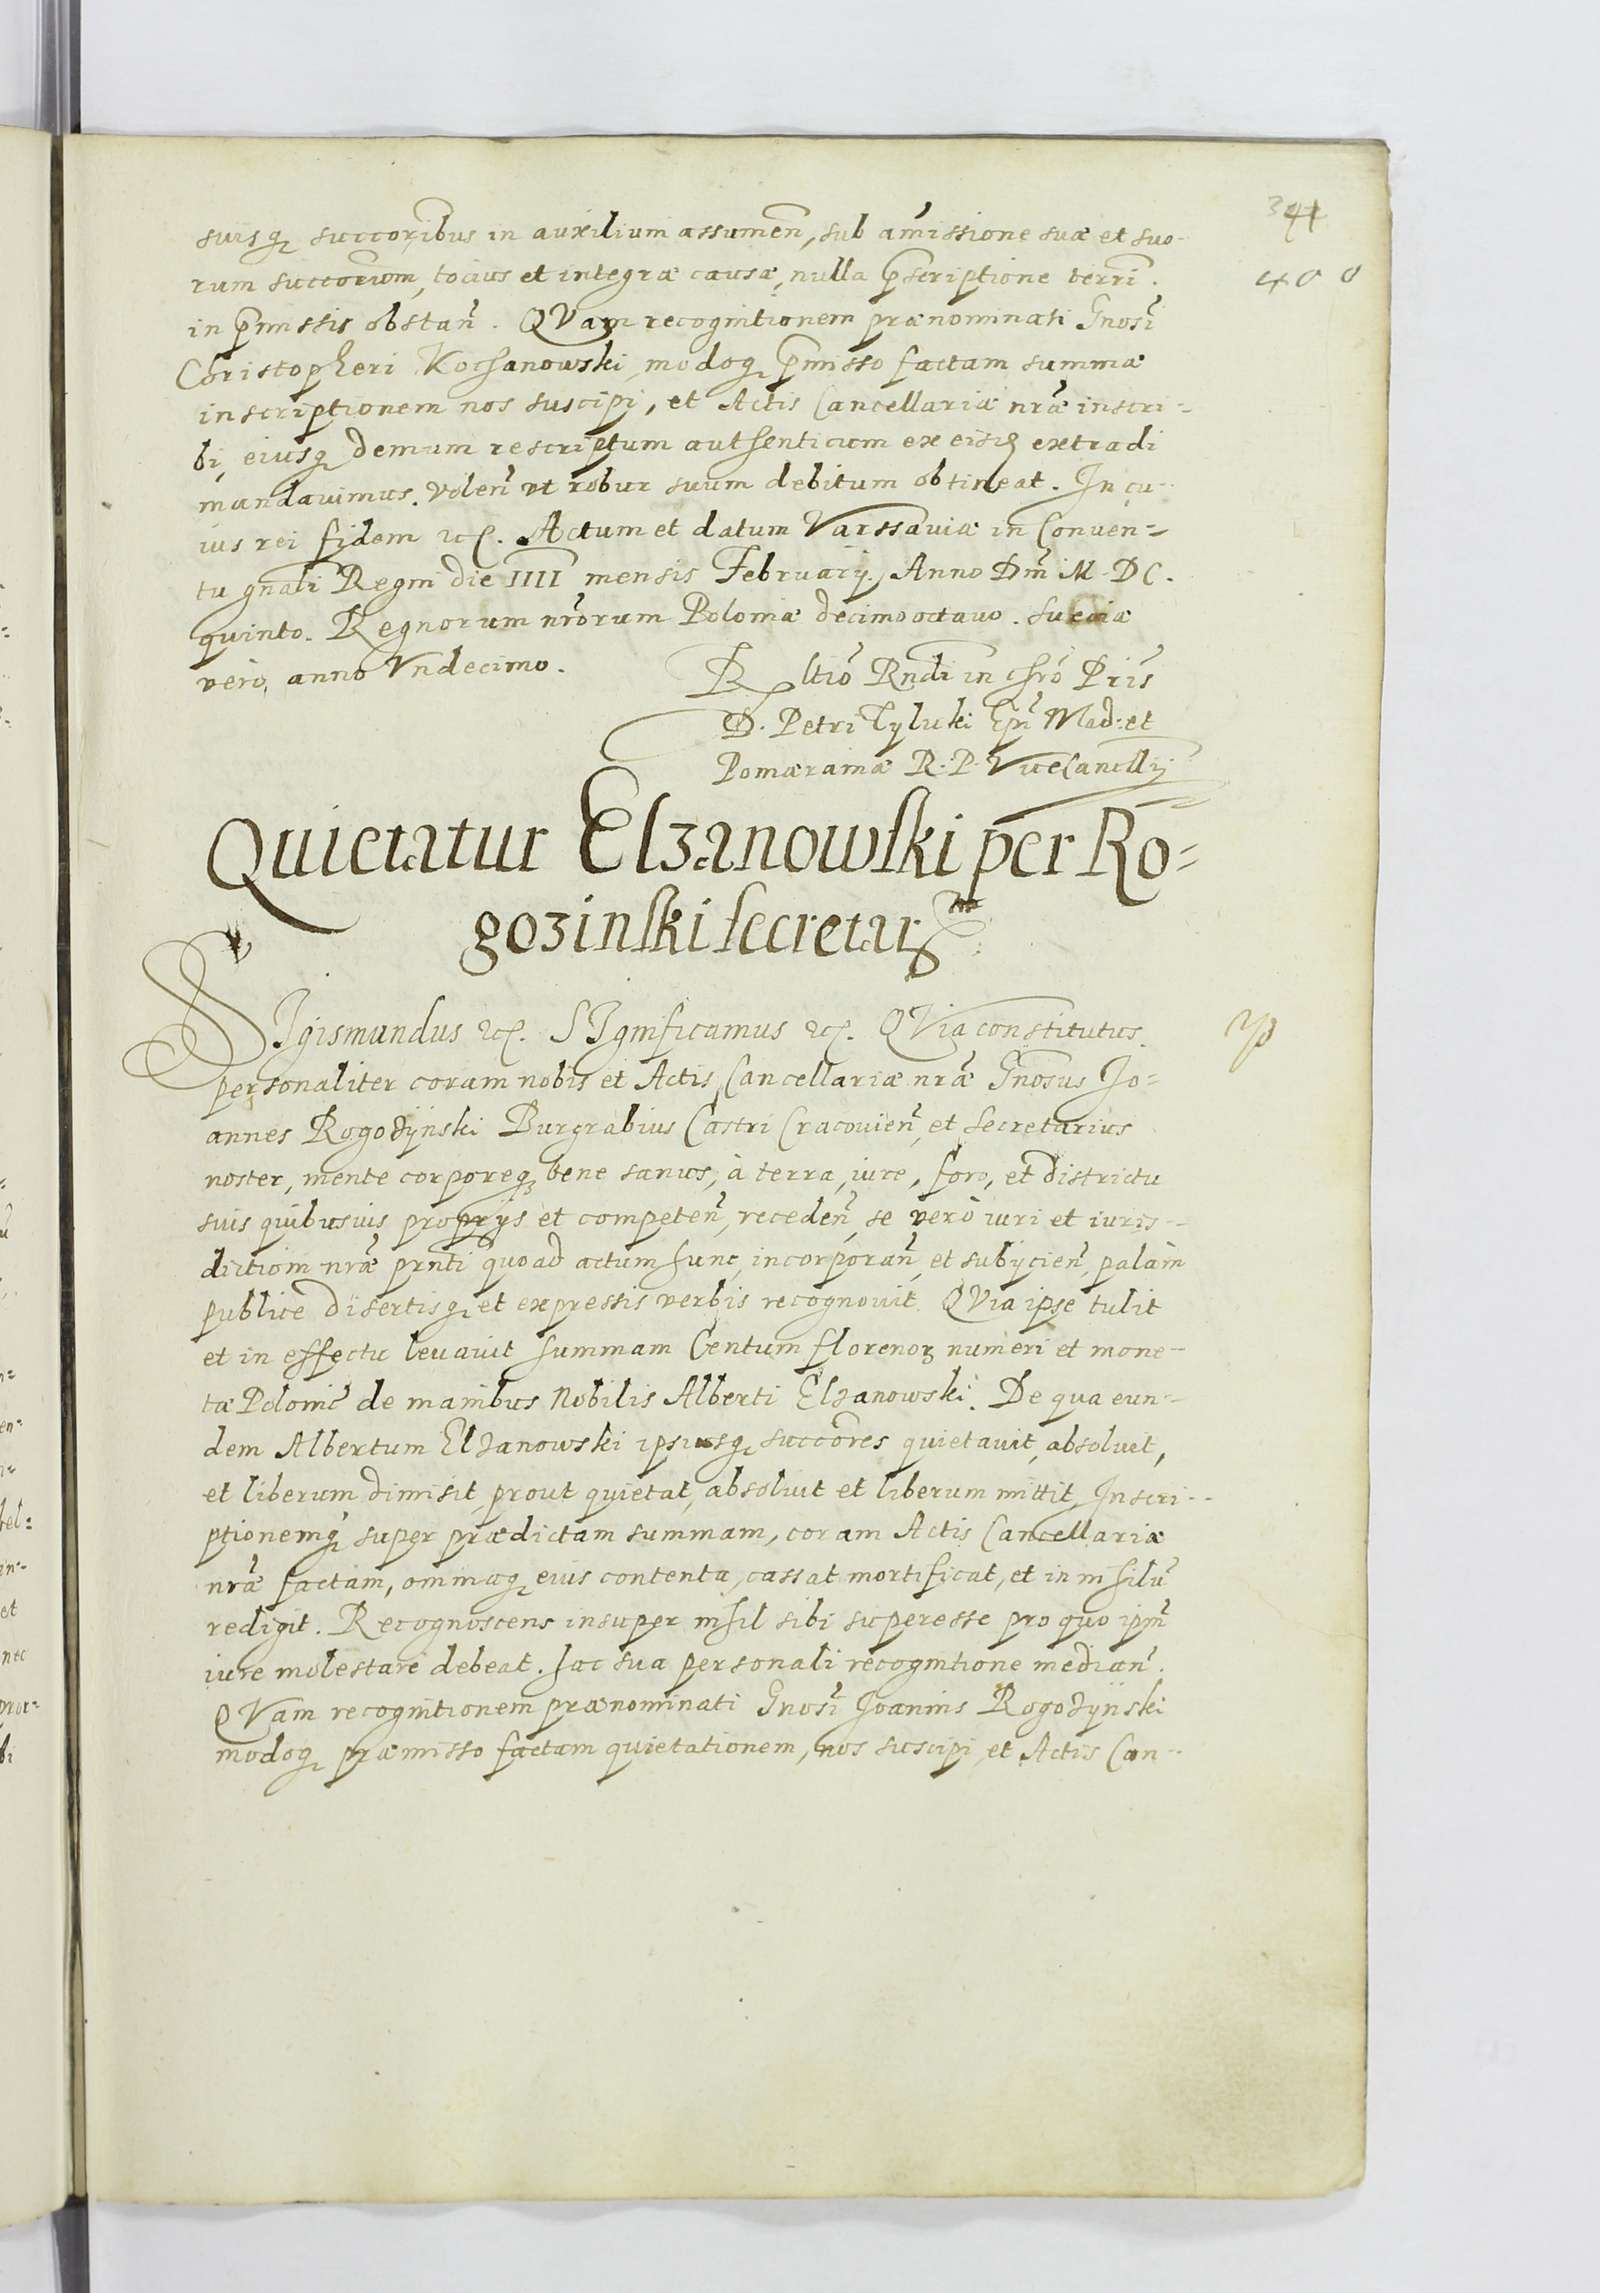 suisq₃ succoribus in auxilium assumen̄, sub amissione suæ et suo-
rum succorum, tocius et integræ causæ, nulla p̄scriptione terri.
in p̄missis obstan̄. QVam recognitionem prænominati Gnosi
Christopheri Kochanowski, modoq₃ p̄misso factam summæ
inscriptionem nos suscipi, et Actis Cancellariæ nr̄æ inscri=
bi, eiusq₃ demum rescriptum authenticum ex eisd. extradi
mandavimus. Volen̄ vt robur suum debitum obtineat. In cu-
ius rei fidem etc. Actum et datum Varssaviæ in Conven=
tu gn̄ali Regni die IIII mensis February, Anno Dn̄i M. DC.
quinto. Regnorum nr̄orum Poloniæ decimo octavo. Sueciæ
verò, anno Vndecimo.
Rltio Rndi in chro Pris
D. Petri Tylicki Epi Mad: et
Pomæraniæ R. P. ViceCancllij
400
Quietatur Elzanowski per Ro=
gozinski secretar
SIgismundus etc. SIgnificamus etc. QVia constitutus
personaliter coram nobis et Actis Cancellariæ nr̄æ Gnosus Jo=
annes Rogozÿnski Burgrabius Castri Cracovien̄, et Secretarius
noster, mente corporeq₃ bene sanus, à terra, iure, foro, et districtu
suis quibusuis proprijs et competen̄, receden̄, se verò iuri et iuris-
dictioni nr̄æ prn̄ti quoad actum hunc, incorporan̄, et subijcien̄, palàm
publice disertisq₃ et expressis verbis recognovit. QVia ipse tulit
et in effectu levavit summam Centum florenoꝝ numeri et mone-
tæ Polonic̄ de manibus Nobilis Alberti Elzanowski. De qua eun-
dem Albertum Elzanowski ipsiusq₃ succores quietavit, absolvit,
et liberum dimisit, prout quietat, absolvit et liberum mittit, Inscri-
ptionemq₃ super prædictam summam, coram Actis Cancellariæ
nr̄æ factam, omniaq₃ eius contenta, cassat mortificat, et in nihilū
redigit. Recognoscens insuper nihil sibi superesse pro quo ipm̄
iure molestare debeat. hac sua personali recognitione median̄.
QVam recognitionem prænominati Gnosi Joannis Rogozÿnski
modoq₃ præmisso factam quietationem, nos suscipi, et Actis Can-